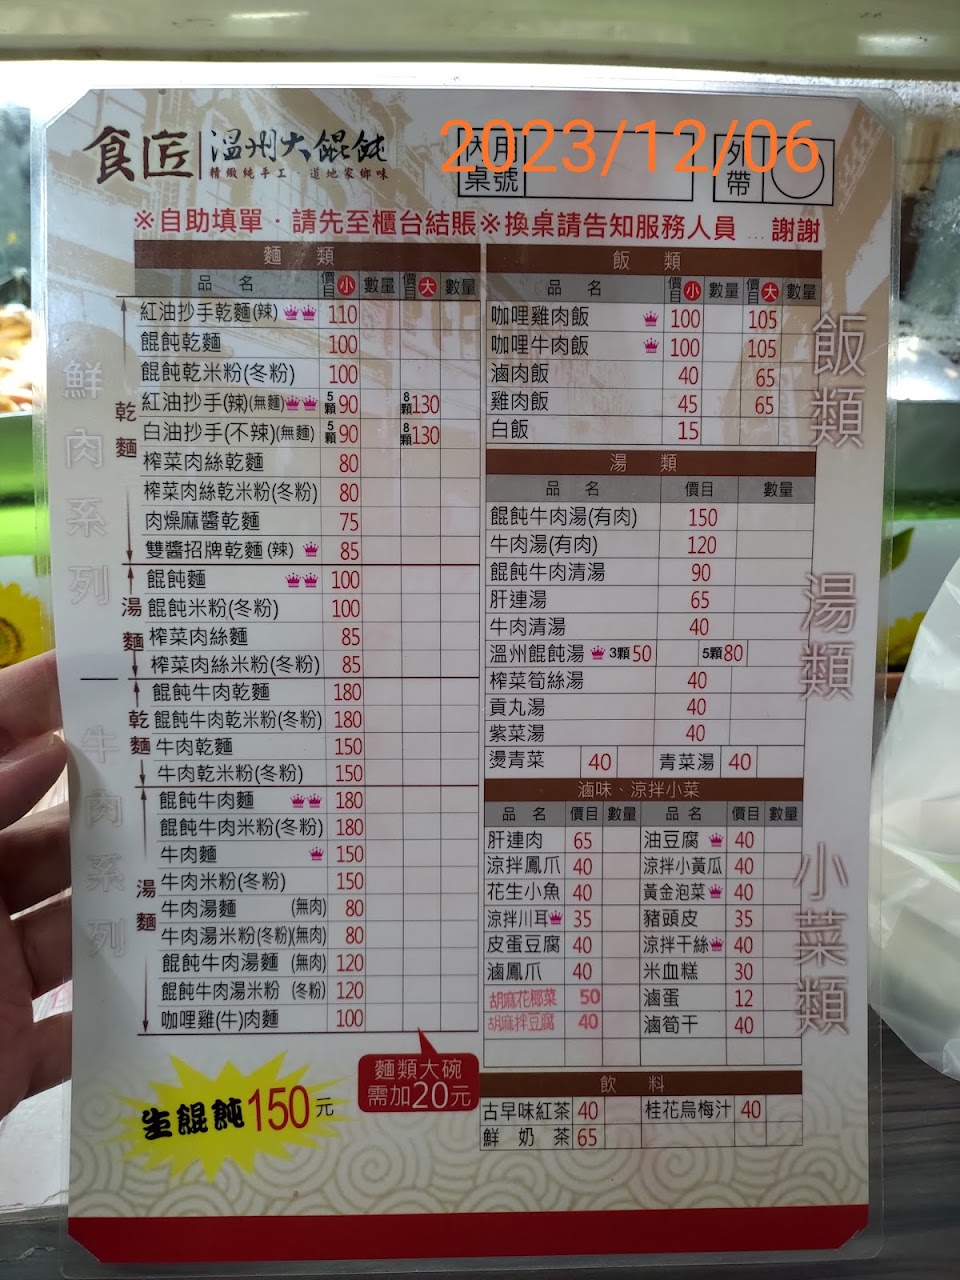 食匠 溫州大餛飩
精緻純手工．道地家鄉味
內用桌號
外帶
2023/12/06
※自助填單．請先至櫃台結賬※換桌請告知服務人員 ... 謝謝
麵 類
品 名 價目 小 數量 價目 大 數量
鮮肉系列
乾麵
紅油抄手乾麵(辣) 110
餛飩乾麵 100
餛飩乾米粉(冬粉) 100
紅油抄手(辣)(無麵) 5顆 90 8顆 130
白油抄手(不辣)(無麵) 5顆 90 8顆 130
榨菜肉絲乾麵 80
榨菜肉絲乾米粉(冬粉) 80
肉燥麻醬乾麵 75
雙醬招牌乾麵(辣) 85
湯麵
餛飩麵 100
餛飩米粉(冬粉) 100
榨菜肉絲麵 85
榨菜肉絲米粉(冬粉) 85
牛肉系列
乾麵
餛飩牛肉乾麵 180
餛飩牛肉乾米粉(冬粉) 180
牛肉乾麵 150
牛肉乾米粉(冬粉) 150
湯麵
餛飩牛肉麵 180
餛飩牛肉米粉(冬粉) 180
牛肉麵 150
牛肉米粉(冬粉) 150
牛肉湯麵 (無肉) 80
牛肉湯米粉(冬粉)(無肉) 80
餛飩牛肉湯麵 (無肉) 120
餛飩牛肉湯米粉 (冬粉) 120
咖哩雞(牛)肉麵 100
麵類大碗
需加20元
生餛飩150元
飯類
飯 類
品 名 價目 小 數量 價目 大 數量
咖哩雞肉飯 100 105
咖哩牛肉飯 100 105
滷肉飯 40 65
雞肉飯 45 65
白飯 15
湯類
湯 類
品 名 價目 數量
餛飩牛肉湯(有肉) 150
牛肉湯(有肉) 120
餛飩牛肉清湯 90
肝連湯 65
牛肉清湯 40
溫州餛飩湯 3顆50 5顆80
榨菜筍絲湯 40
貢丸湯 40
紫菜湯 40
燙青菜 40 青菜湯 40
小菜類
滷味、涼拌小菜
品 名 價目 數量 品 名 價目 數量
肝連肉 65 油豆腐 40
涼拌鳳爪 40 涼拌小黃瓜 40
花生小魚 40 黃金泡菜 40
涼拌川耳 35 豬頭皮 35
皮蛋豆腐 40 涼拌干絲 40
滷鳳爪 40 米血糕 30
胡麻花椰菜 50 滷蛋 12
胡麻拌豆腐 40 滷筍干 40
飲 料
古早味紅茶 40 桂花烏梅汁 40
鮮 奶 茶 65